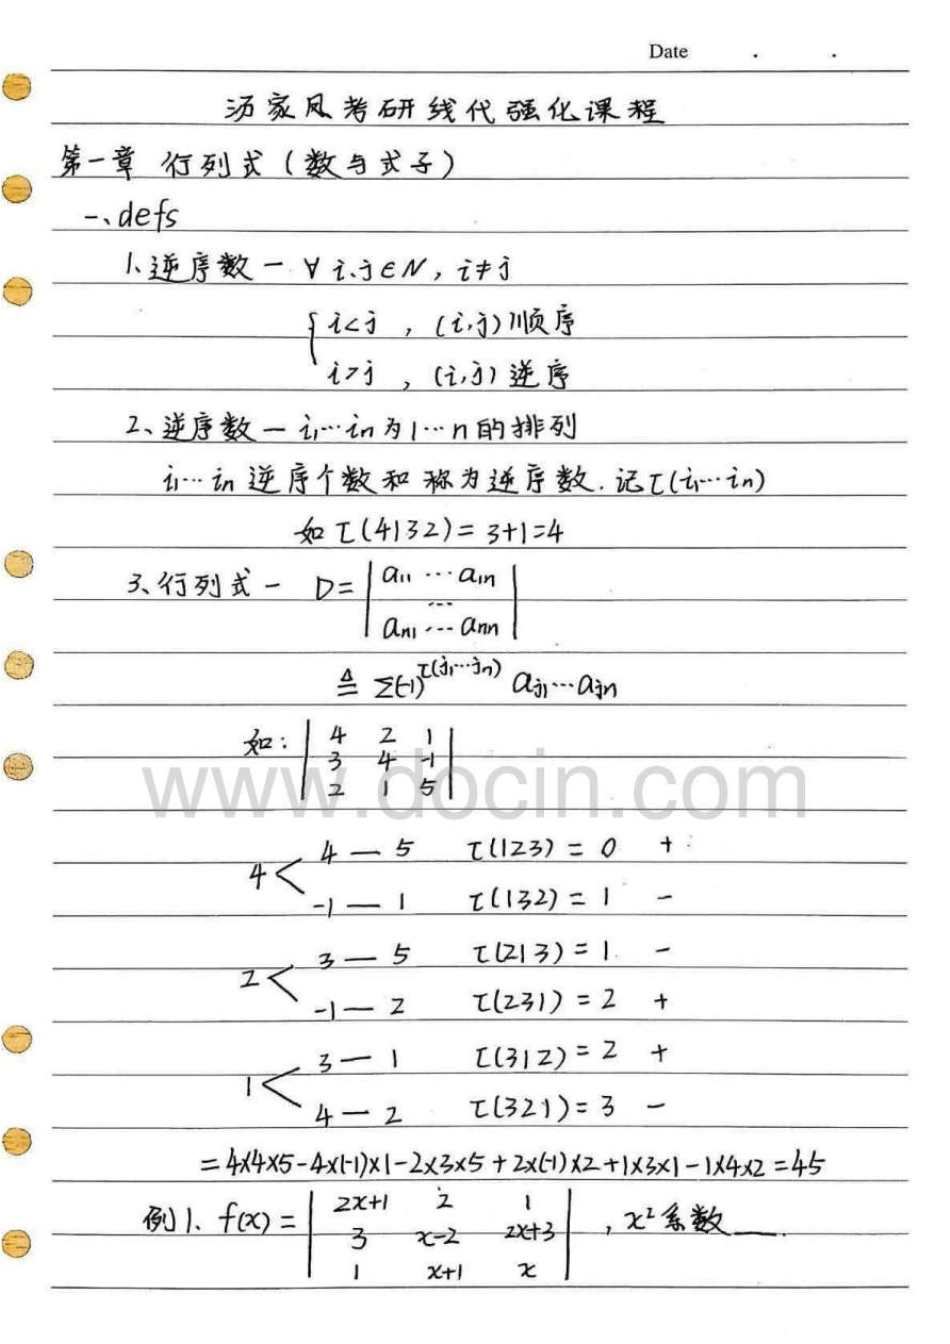 Date . .
汤家凤考研线代强化课程
第一章 行列式（数与式子）
一、defs
1、逆序数 — ∀ i、j∈N，i≠j
{ i<j ，(i,j) 顺序
i>j ，(i,j) 逆序
2、逆序数 — i₁…iₙ为1…n的排列
i₁…iₙ 逆序个数和 称为逆序数. 记τ(i₁…iₙ)
如 τ(4132) = 3+1=4
3、行列式 — D= | a₁₁ … a₁ₙ |
…
| aₙ₁ … aₙₙ |
≜ Σ(-1)^τ(j₁…jₙ) aⱼ₁…aⱼₙ
如: | 4 2 1 |
| 3 4 -1 |
| 2 1 5 |
www.docin.com
4 < 4 — 5 τ(123) = 0 +
-1 — 1 τ(132) = 1 -
2 < 3 — 5 τ(213) = 1. -
-1 — 2 τ(231) = 2 +
1 < 3 — 1 τ(312) = 2 +
4 — 2 τ(321) = 3 -
= 4×4×5-4×(-1)×1-2×3×5+2×(-1)×2+1×3×1-1×4×2=45
例1. f(x) = | 2x+1 2 1 | , x² 系数___.
| 3 x-2 2x+3 |
| 1 x+1 x |